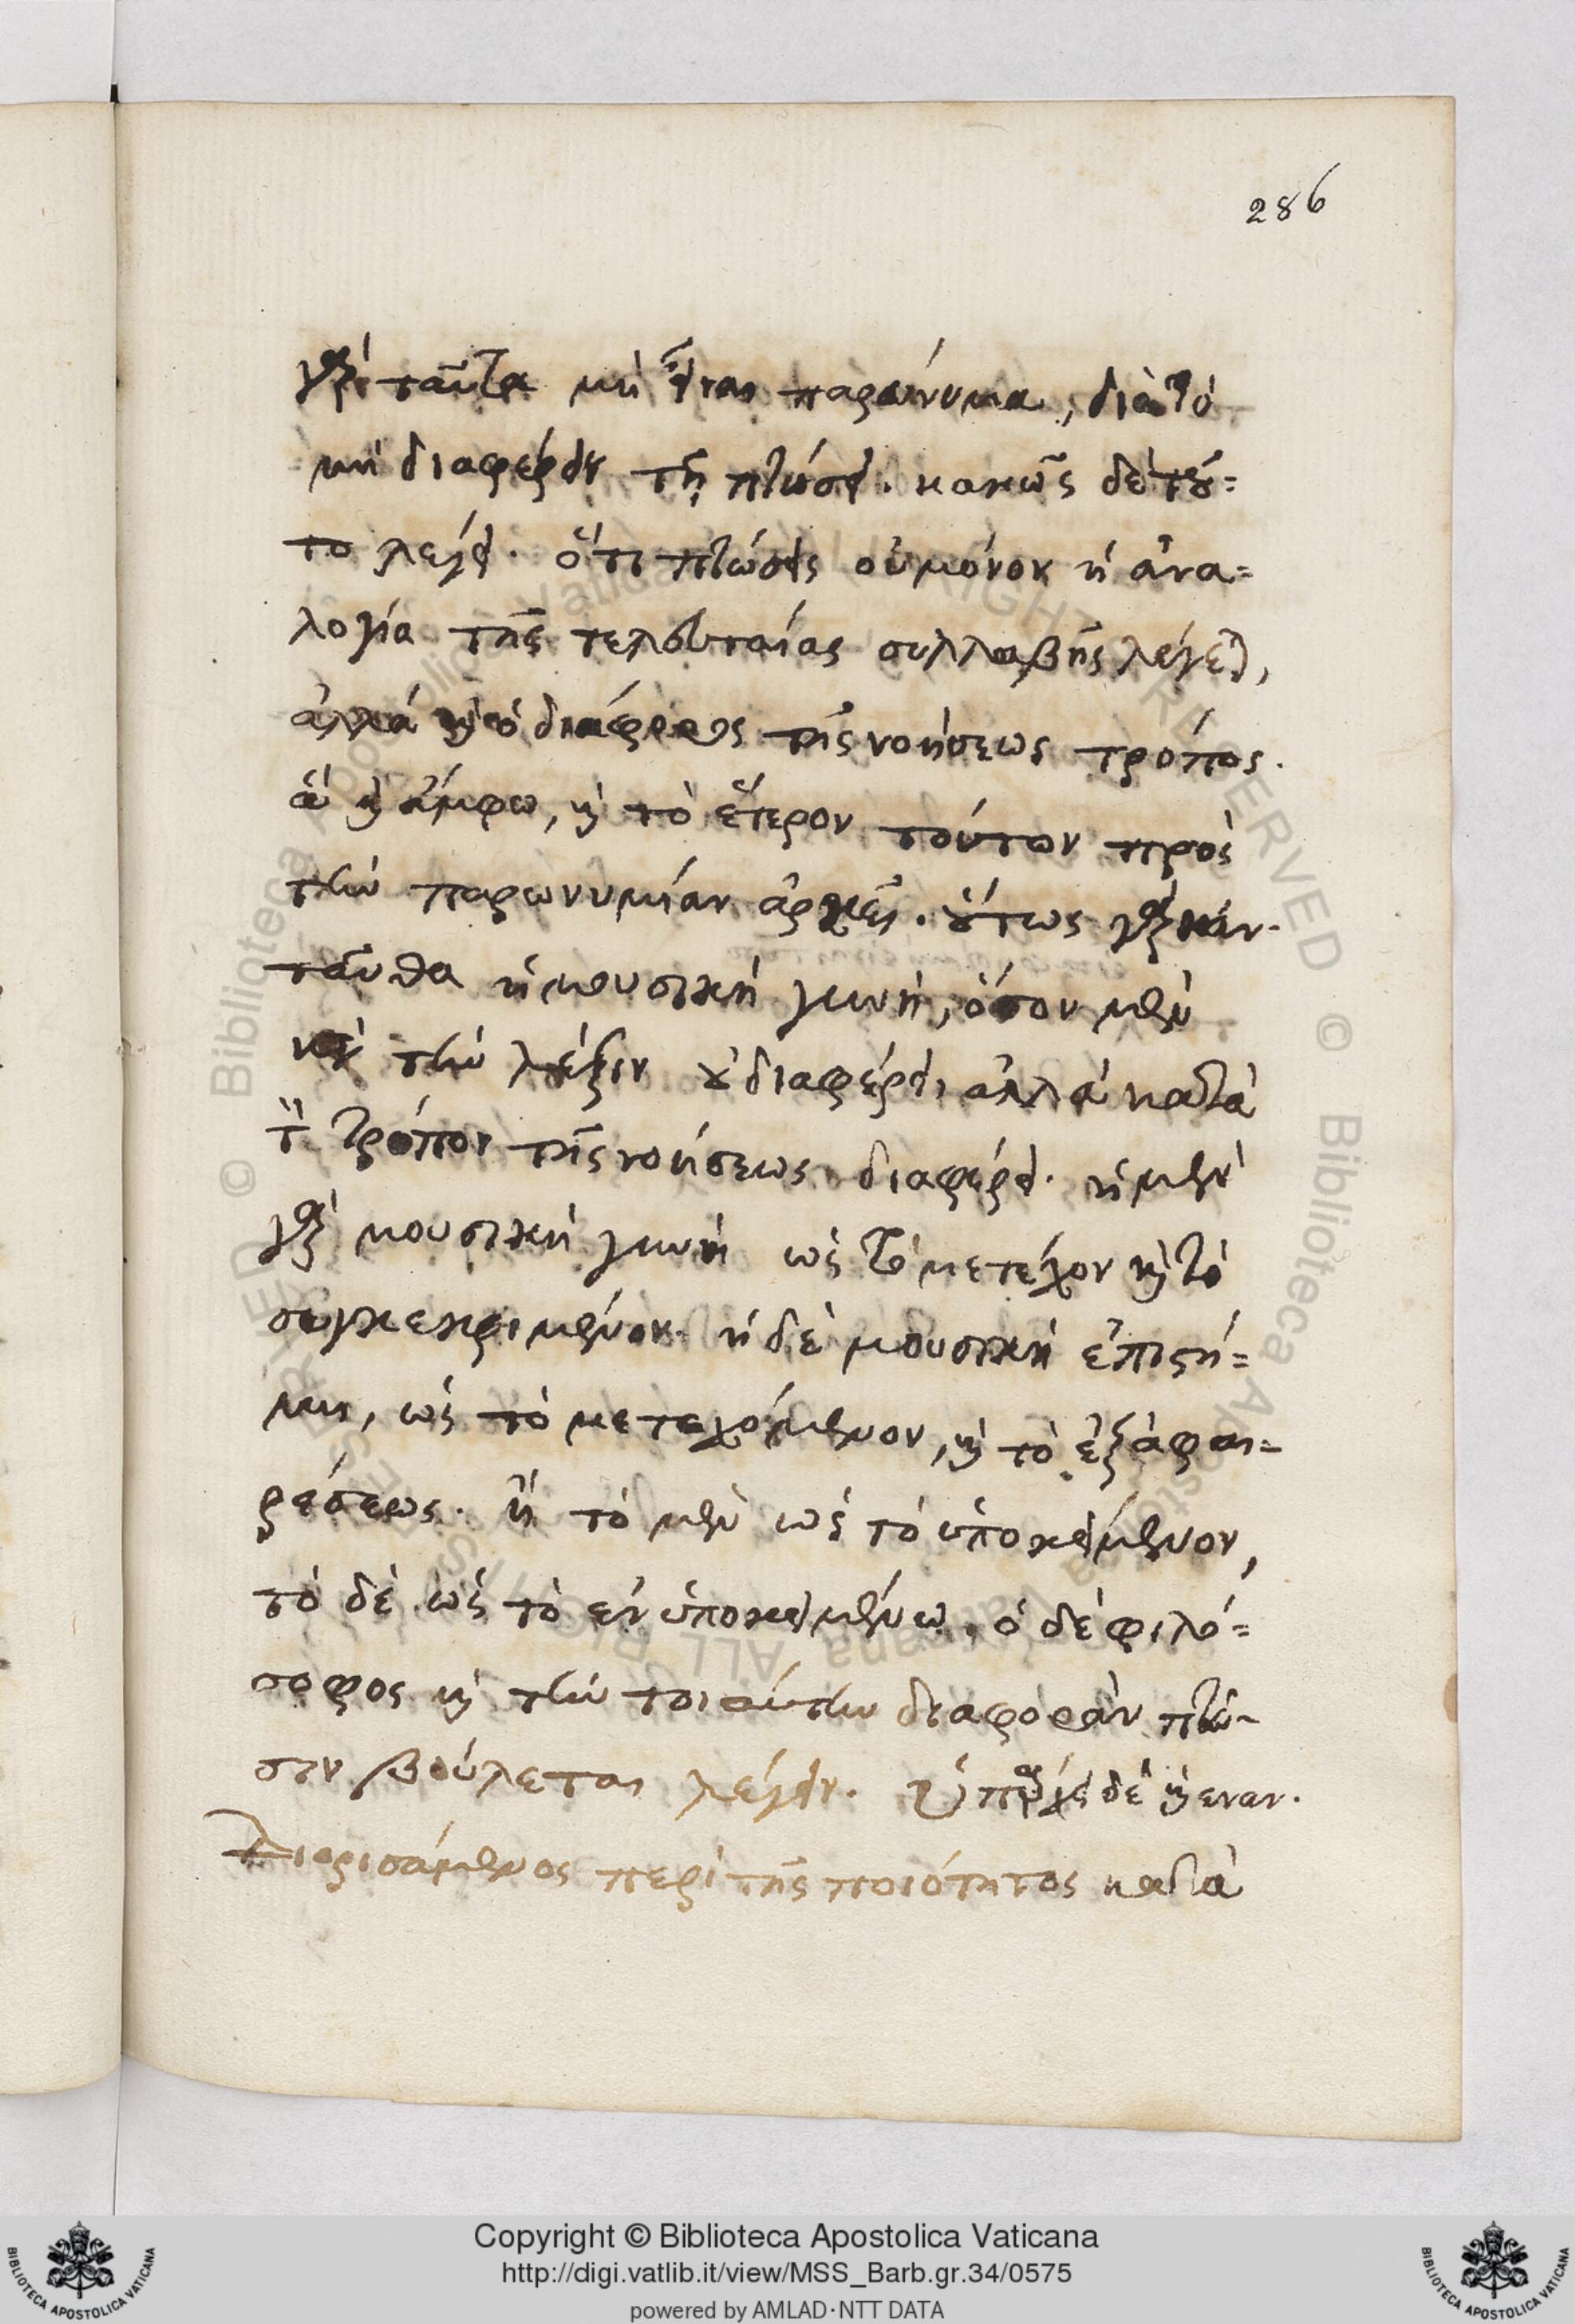 286
γὰρ ταῦτα μὴ εἶναι παρώνυμα, διὰ τὸ
μὴ διαφέρειν τῇ πτώσει. κακῶς δὲ τοῦ=
το λέγει. ὅτι πτῶσις οὐ μόνον ἡ ἀνα=
λογία τῆς τελευταίας συλλαβῆς λέγεται,
ἀλλὰ καὶ ὁ διάφορος τῆς νοήσεως τρόπος.
ἃ καὶ ἄμφω, καὶ τὸ ἕτερον τούτων πρὸς
τὴν παρωνυμίαν ἀρκεῖ. οὕτως γὰρ κἀν-
ταῦθα ἡ μουσικὴ γυνὴ, ὅσον μὲν
κατὰ τὴν λέξιν οὐ διαφέρει, ἀλλὰ κατὰ
τὸν τρόπον τῆς νοήσεως διαφέρει. ἡ μὲν
γὰρ μουσικὴ γυνὴ ὡς τὸ μετέχον καὶ τὸ
συγκεκριμένον. ἡ δὲ μουσικὴ ἐπιστή=
μη, ὡς τὸ μετεχόμενον, καὶ τὸ ἐξ ἀφαι=
ρέσεως. ἢ τὸ μὲν ὡς τὸ ὑποκείμενον,
τὸ δὲ ὡς τὸ ἐν ὑποκειμένῳ. ὁ δὲ φιλό=
σοφος καὶ τὴν τοιαύτην διαφορὰν πτῶ-
σιν βούλεται λέγειν. Ὑπάρχει δὲ καὶ ἐναν-
Διορισάμενος περὶ τῆς ποιότητος κατὰ
Copyright © Biblioteca Apostolica Vaticana
http://digi.vatlib.it/view/MSS_Barb.gr.34/0575
powered by AMLAD·NTT DATA